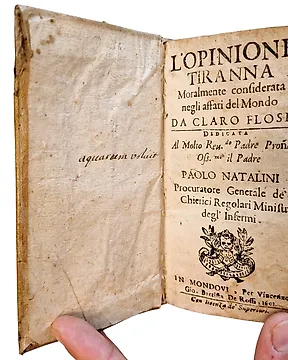 aquarum
L'OPINIONE
TIRANNA
Moralmente considerata
negli affari del Mondo
DA CLARO FLOSI
DEDICATA
Al Molto Reu.do Padre
Oss.mo il Padre
PAOLO NATALINI
Procuratore Generale de'
Chierici Regolari Ministri
degl' Infermi.
IN MONDOVI, Per Vincenzo
Gio. Battista De Rossi
Con licenza de' Superiori.